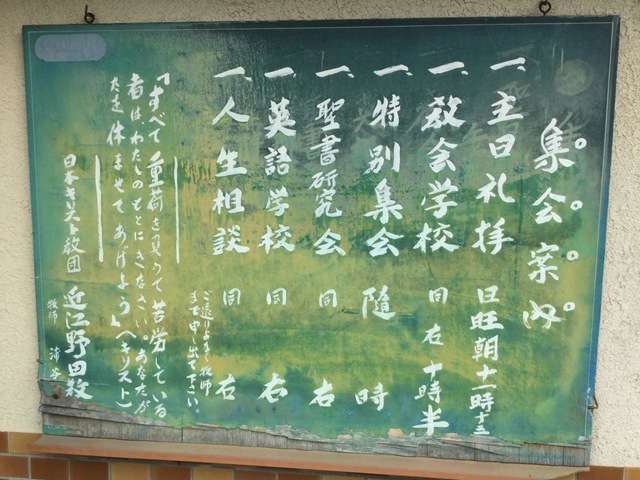 集会案内
一、主日礼拝 日旺朝十一時十五
一、教会学校 同右 十時半
一、特別集会 随時
一、聖書研究会 同右
一、英語学校 同右
一、人生相談 同右
ご遠りよなく牧師
まで申し出て下さい。
「すべて重荷を負うて苦労している
者はわたしのもとにきなさい。あなたが
たを休ませてあげよう」(キリスト)
日本キリスト教団
近江野田教
牧師